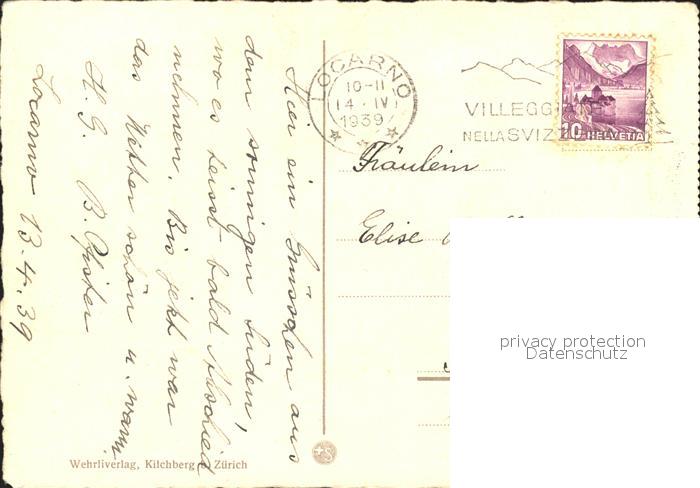 Hier ein Grüsschen aus
dem sonnigen Süden,
wo es heisst bald Abschied
nehmen. Bis jetzt war
das Wetter schön u. warm.
H. G. B. Pfister
Locarno 13.4.39
LOCARNO
10-11
14 · IV
1939
VILLEGGI
NELLA SVIZ
10 HELVETIA
Fräulein
Elise
privacy protection
Datenschutz
Wehrliverlag, Kilchberg Zürich